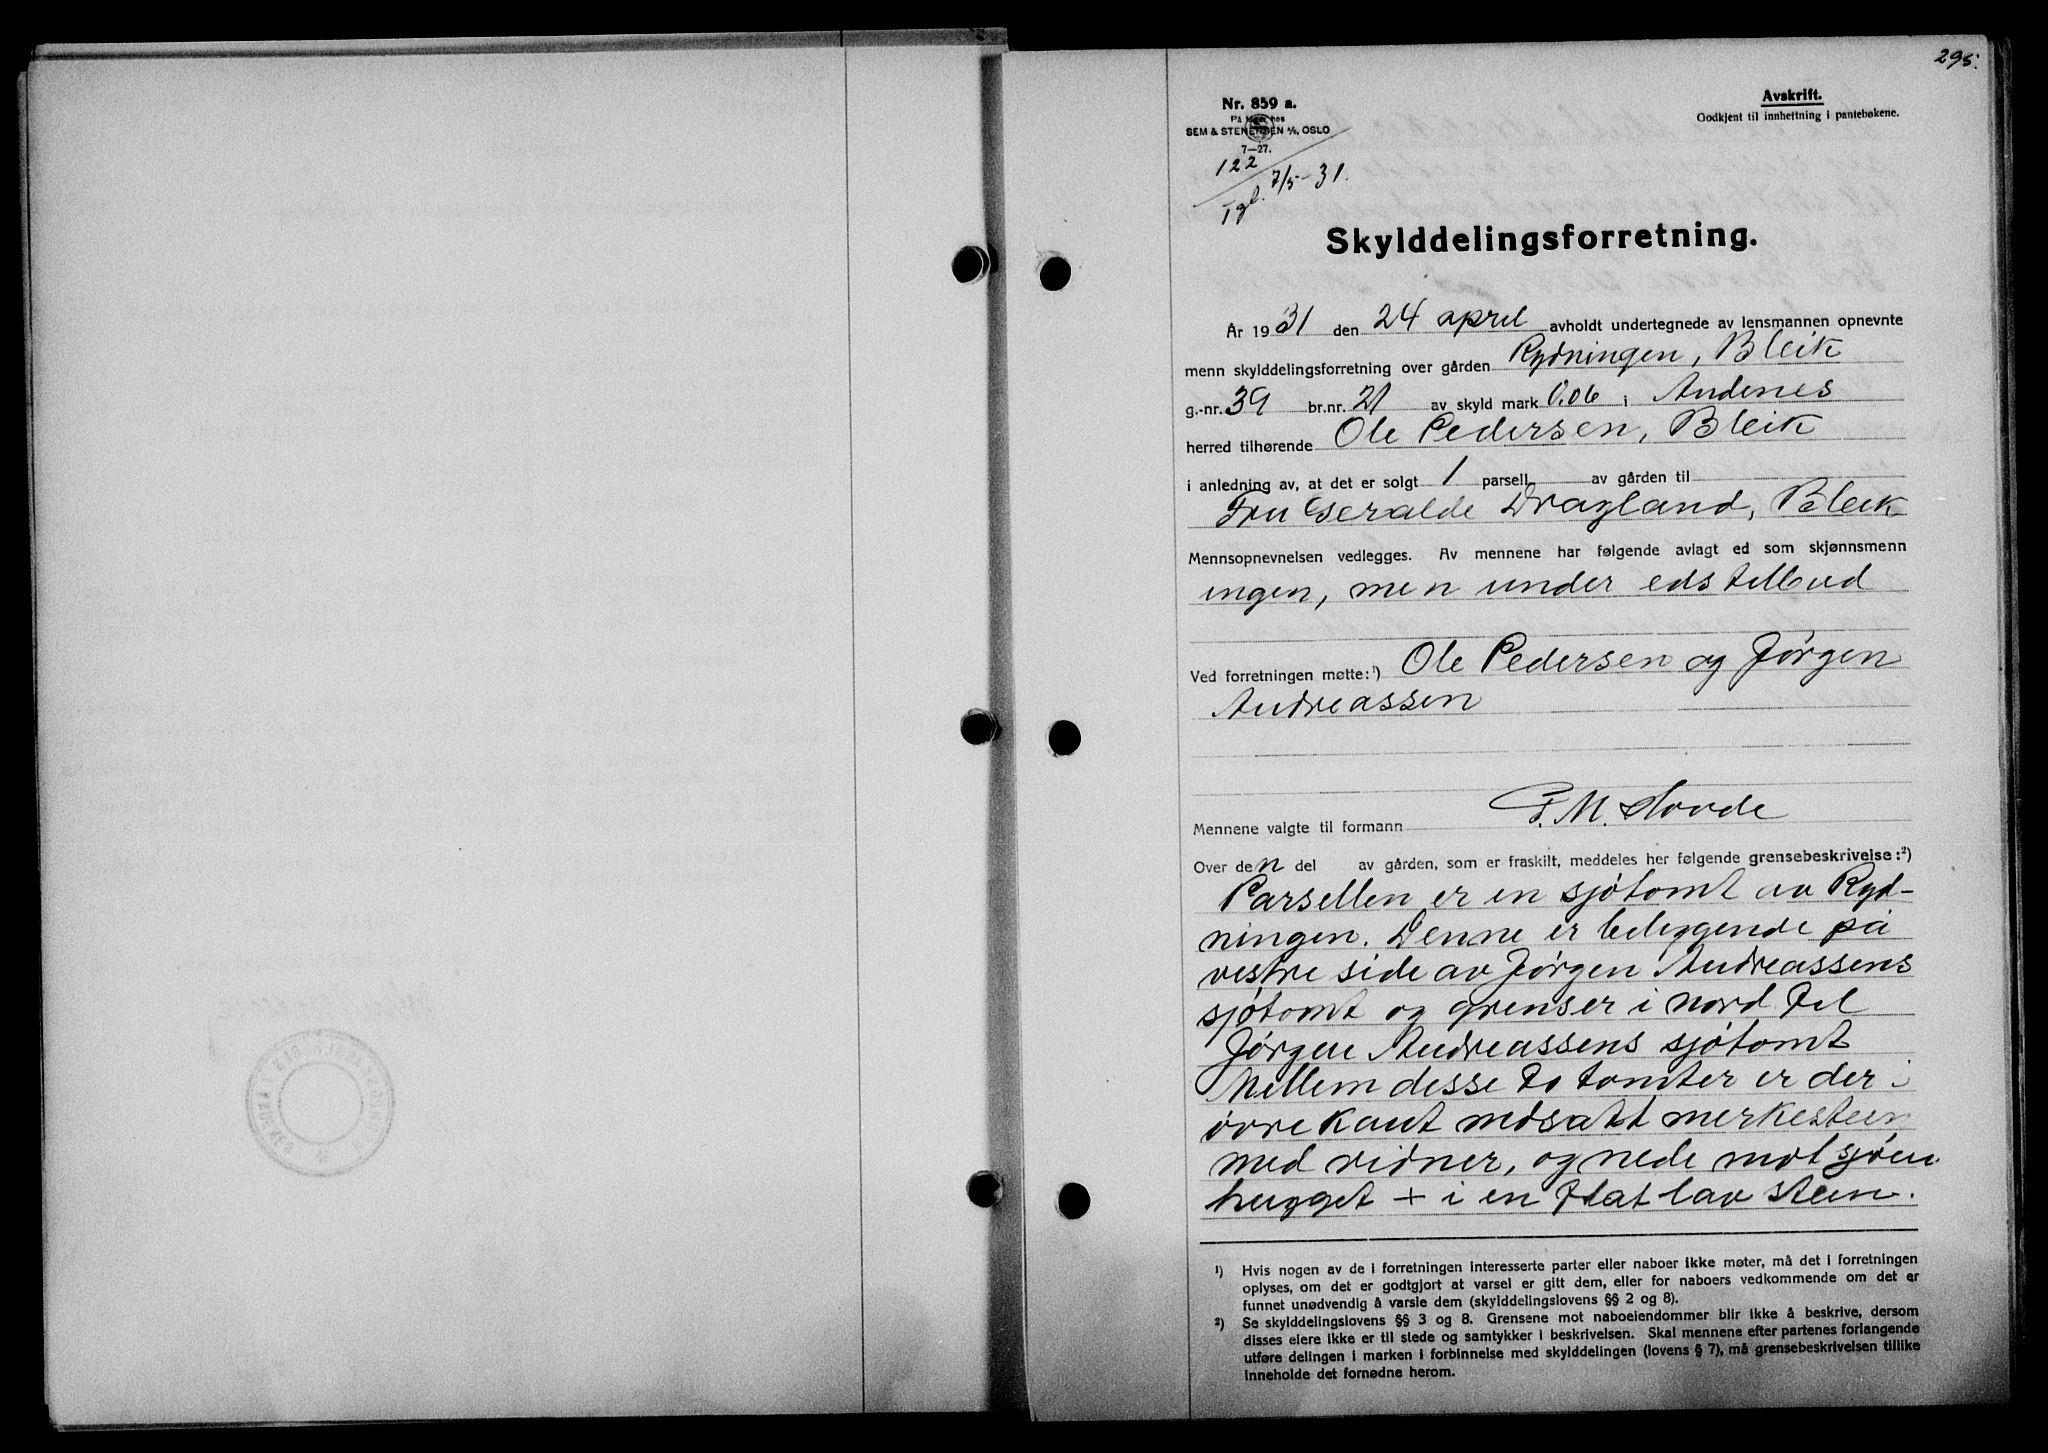 295.
Nr. 859 a.
På lager hos
SEM & STENERSEN A/S, OSLO
7—27.
Avskrift.
Godkjent til innheftning i pantebøkene.
122
Tgl. 7/5-31.
Skylddelingsforretning.
År 1931 den 24 april avholdt undertegnede av lensmannen opnevnte
menn skylddelingsforretning over gården Rydningen, Bleik
g.-nr. 39 br.nr. 21 av skyld mark 0.06 i Andenes
herred tilhørende Ole Pedersen, Bleik
i anledning av, at det er solgt 1 parsell av gården til
Fru Geralde Dragland, Bleik
Mennsopnevnelsen vedlegges. Av mennene har følgende avlagt ed som skjønnsmenn
ingen, men under edstilbud
Ved forretningen møtte:¹) Ole Pedersen og Jørgen
Andreassen
Mennene valgte til formann M.
Over den del av gården, som er fraskilt, meddeles her følgende grensebeskrivelse:²)
Parsellen er en sjøtomt av Ryd-
ningen. Denne er beliggende på
vestre side av Jørgen Andreassens
sjøtomt og grenser i nord til
Jørgen Andreassens sjøtomt
Mellem disse to tomter er der i
øvre kant nedsatt merkesteen
med vidner, og nede mot sjøen
hugget + i en flat lav steen.
¹) Hvis nogen av de i forretningen interesserte parter eller naboer ikke møter, må det i forretningen
oplyses, om det er godtgjort at varsel er gitt dem, eller for naboers vedkommende om det er
funnet unødvendig å varsle dem (skylddelingslovens §§ 2 og 8).
²) Se skylddelingslovens §§ 3 og 8. Grensene mot naboeiendommer blir ikke å beskrive, dersom
disses eiere ikke er til stede og samtykker i beskrivelsen. Skal mennene efter partenes forlangende
utføre delingen i marken i forbinnelse med skylddelingen (lovens § 7), må grensebeskrivelsen tillike
inneholde det fornødne herom.